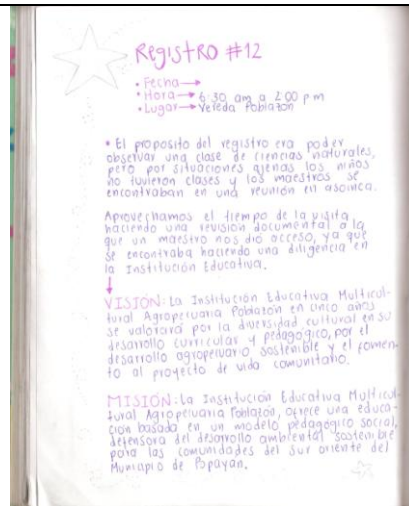 Registro #12
• Fecha→
• Hora→ 6:30 am a 2:00 pm
• Lugar→ Vereda Poblazón
• El proposito del registro era poder
observar una clase de ciencias naturales,
pero por situaciones ajenas los niños
no tuvieron clases y los maestros se
encontraban en una reunión en asoinca.
Aprovechamos el tiempo de la visita
haciendo una revisión documental a la
que un maestro nos dió acceso, ya que
se encontraba haciendo una diligencia en
la Institución Educativa.
↓
VISIÓN: La Institución Educativa Multicul-
tural Agropecuaria Poblazón en cinco años
se valorará por la diversidad cultural en su
desarrollo curricular y pedagógico, por el
desarrollo agropecuario sostenible y el fomen-
to al proyecto de vida comunitario.
MISIÓN: La Institución Educativa Multicul-
tural Agropecuaria Poblazón, ofrece una educa-
ción basada en un modelo pedagógico social,
defensora del desarrollo ambiental sostenible
para las comunidades del sur oriente del
Municipio de Popayán.